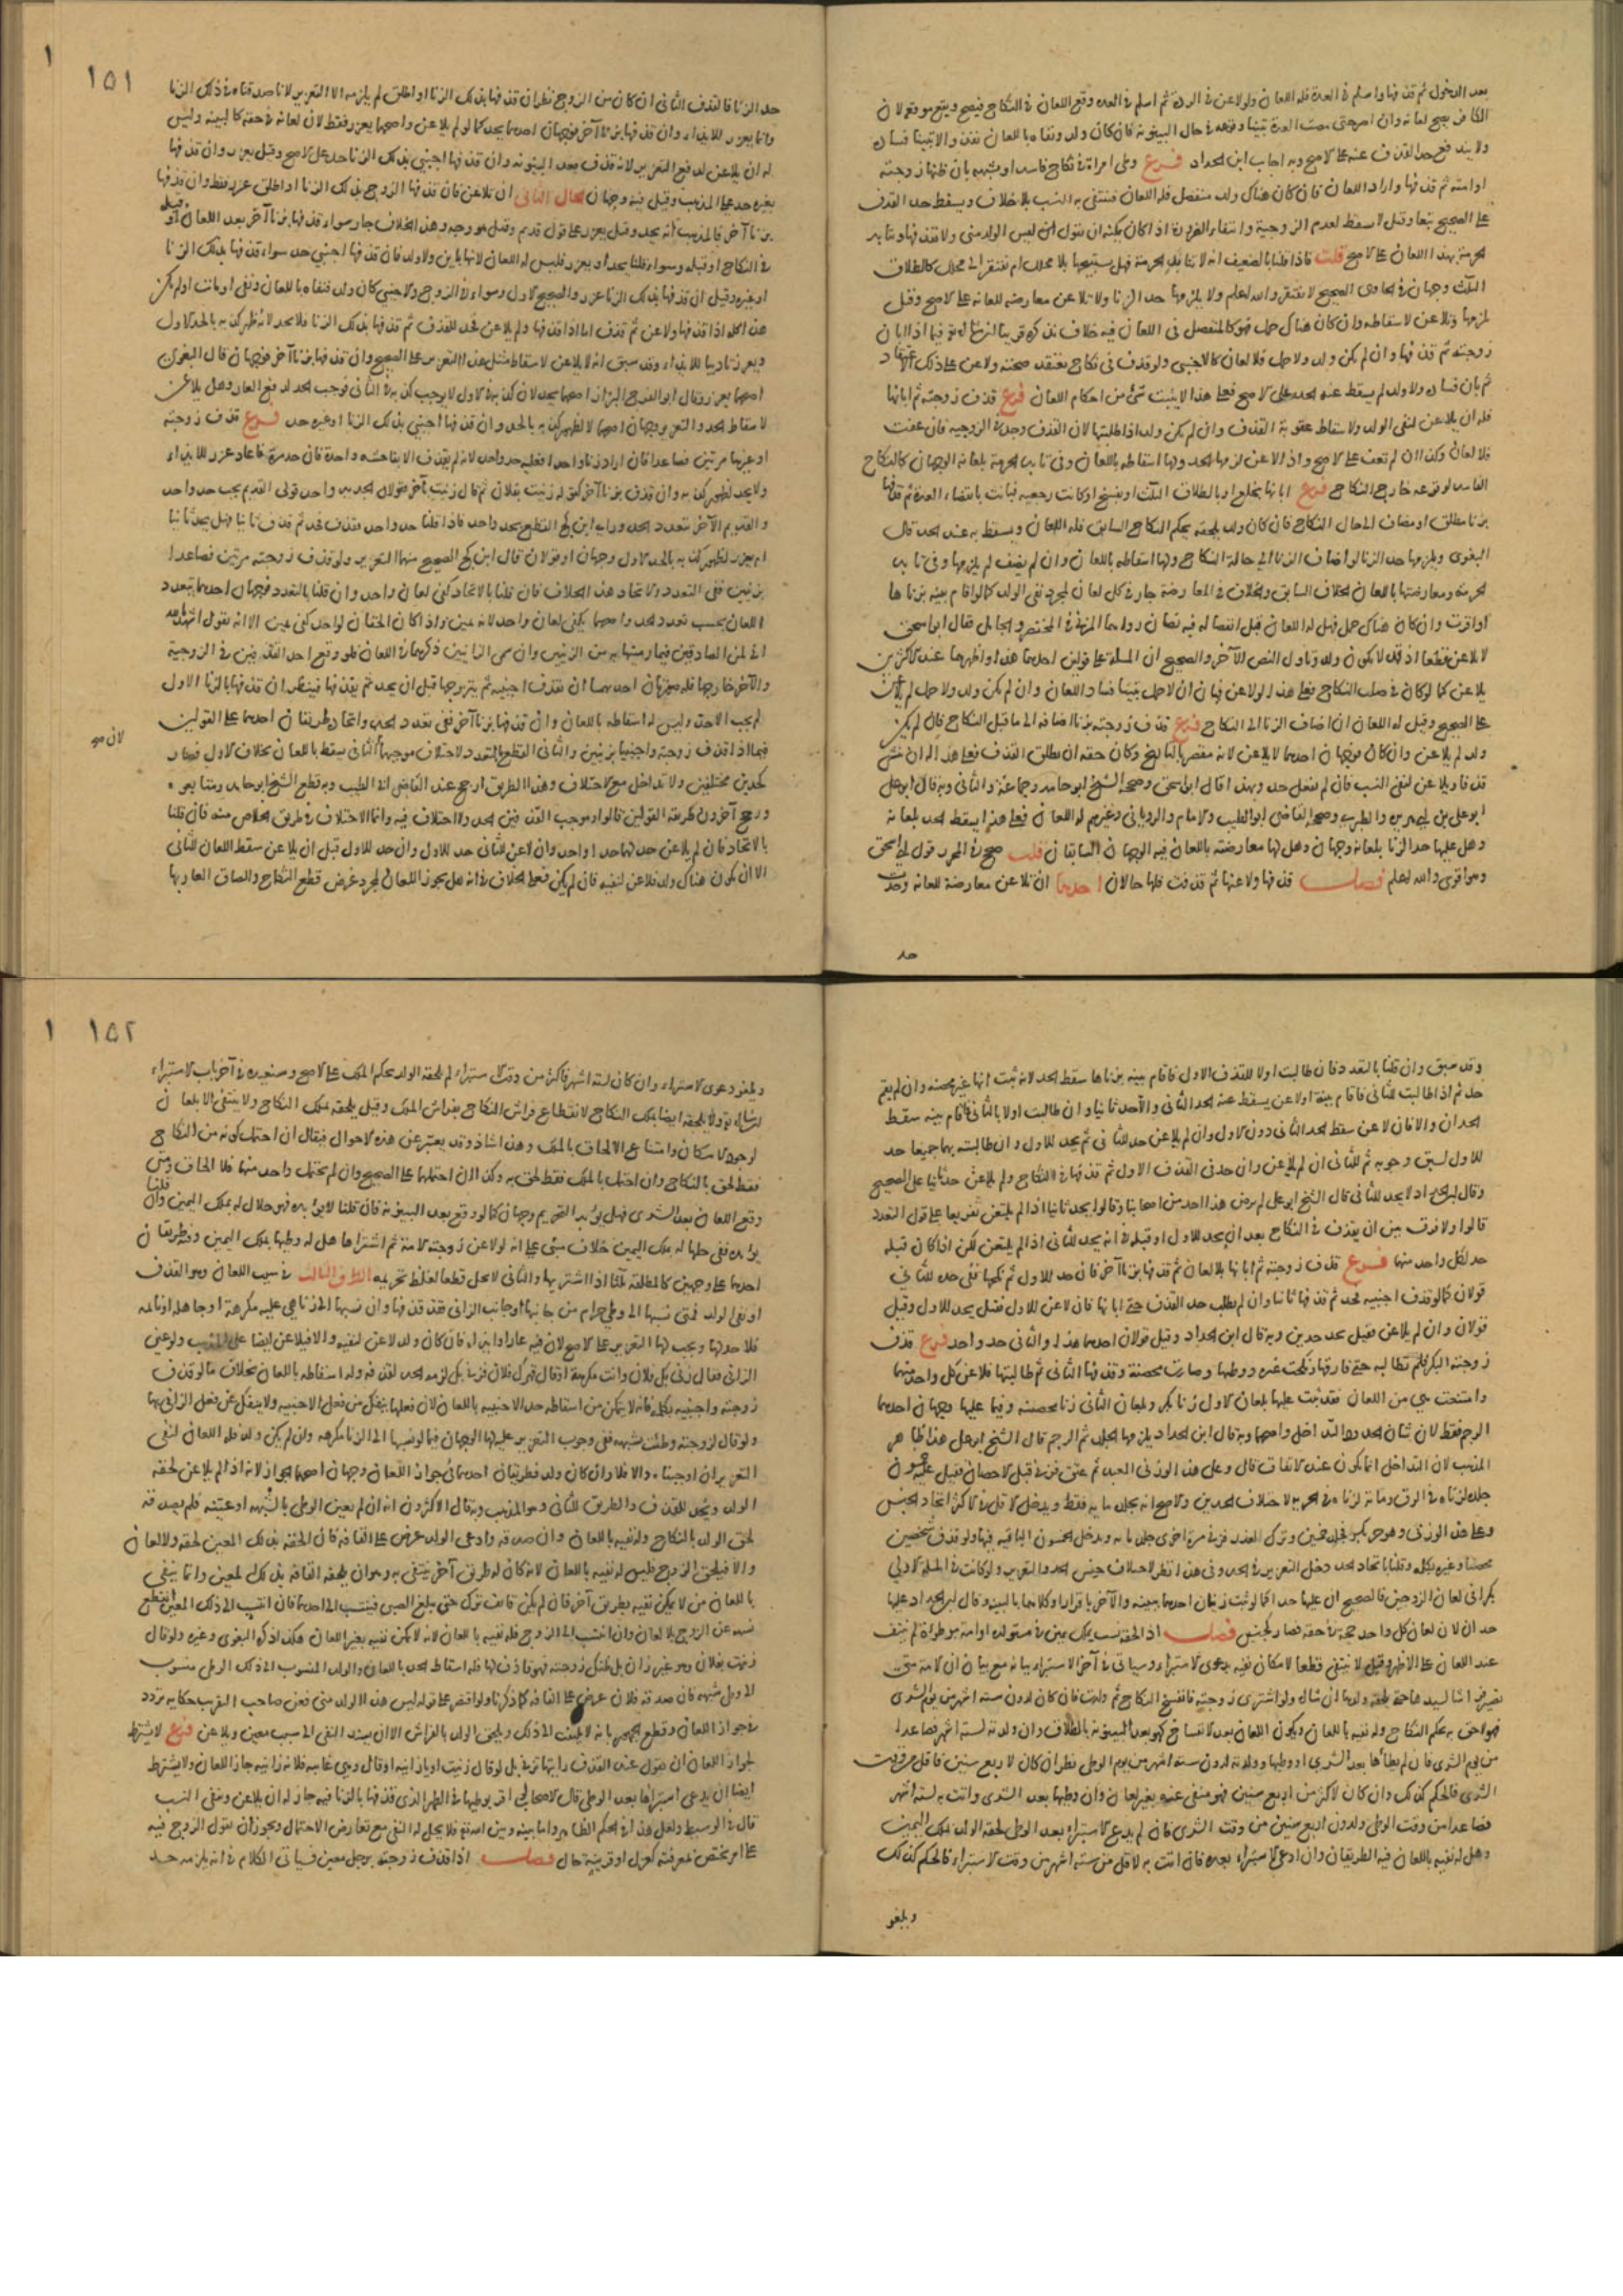 بعد الدخول ثم قذفها واسلم في العدة فله اللعان ولو لاعن في الردة ثم اسلم في العدة وقع اللعان في النكاح فيصح ويقع موقعه لان
الكافر يصح لعانه وان اصر حتى مضت العدة تبينا وقوعه في حال البينونة فان كان ولد ونفاه باللعان نفذ والا تبينا فساده
ولا يندفع حد القذف عنه على الاصح وبه اجاب ابن الحداد فرع وطى امراة في نكاح فاسد او شبهة بان ظنها زوجته
او امته ثم قذفها واراد اللعان فان كان هناك ولد منفصل فله اللعان فينتفى به النسب بلا خلاف ويسقط حد القذف
على الصحيح تبعا وقيل لا يسقط لعدم الزوجية وانتفاء الضرورة اذ كان يمكنه ان يقول ليس الولد منى ولا يقذفها وتتابد
الحرمة بهذا اللعان على الاصح قلت فاذا قلنا بالضعيف انه لا تتابد الحرمة فهل يستبيحها بلا محلل ام تفتقر الى محلل كالطلاق
الثلث وجهان في الحاوى الصحيح لا تفتقر والله اعلم ولا يلزمها حد الزنا ولا تلاعن معارضه للعانه على الاصح وقيل
يلزمها وتلاعن لاسقاطه وان كان هناك حمل فهو كالمنفصل
زوجته ثم قذفها وان لم يكن ولد ولا حمل فلا لعان كالاجنبى ولو قذف في نكاح يعتقد صحته ولاعن على ذلك الاعتقاد
ثم بان فساده ولا ولد لم يسقط عنه الحد على الاصح فعلى هذا لا يثبت شئ من احكام اللعان فرع قذف زوجته ثم ابانها
فله ان يلاعن لنفى الولد ولاسقاط عقوبة القذف وان لم يكن ولد اذا طلبتها لان القذف وجد في الزوجية فان عفت
فلا لعان وكذا ان لم تعف على الاصح واذا لاعن لزمها الحد ولها اسقاطه باللعان وفى تابد الحرمة بلعانه الوجهان كالنكاح
الفاسد لوقوعه خارج النكاح فرع ابانها بخلع او بالطلاق الثلث او بفسخ او كانت رجعيه فبانت بانقضاء العدة ثم قذفها
بزنا مطلق او مضاف الى حال النكاح فان كان ولد يلحقه بحكم النكاح السابق فله اللعان ويسقط به عنه الحد قال
البغوى ويلزمها حد الزنا لو اضاف الزنا الى حالة النكاح ولها اسقاطه باللعان وان لم يضف لم يلزمها وفى تابد
الحرمة ومعارضتها باللعان الخلاف السابق والخلاف في المعارضة جار في كل لعان لمجرد نفى الولد كما لو اقام بينه بزناها
او اقرت وان كان هناك حمل فهل له اللعان قبل انفصاله فيه نصان رواهما المزنى في المختصر
لا يلاعن قطعا اذ قد لا يكون ولد وتاول النص الآخر والصحيح ان المسلة على قولين احدهما هذا واظهرهما عند الاكثرين
يلاعن كما لو كان في صلب النكاح فعلى هذا لو لاعن فبان ان لا حمل تبينا فساد اللعان وان لم يكن ولد ولا حمل لم يلاعن
على الصحيح وقيل له اللعان ان اضاف الزنا الى النكاح فرع قذف زوجته بزنا اضافه الى ما قبل النكاح فان لم يكن
ولد لم يلاعن وان كان فوجهان احدهما لا يلاعن لانه مقصر بالتاريخ وكان حقه ان يطلق القذف فعلى هذا له ان ينشى
قذفا ويلاعن لنفى النسب فان لم يفعل حد وبهذا قال ابو اسحق وصححه الشيخ ابو حامد وجماعة والثانى وبه قال ابو على
ابو على بن ابى هريرة والطبرى وصححه القاضى ابو الطيب والامام والرويانى وغيرهم له اللعان فعلى هذا يسقط الحد بلعانه
وهل عليها حد الزنا بلعانه وجهان وهل لها معارضته باللعان فيه الوجهان السابقان قلت صحح في المحرر قول ابى اسحق
وهو اقوى والله اعلم فصل قذفها ولاعنها ثم قذفت فلها حالان احدهما ان تلاعن معارضة للعانه وحدت
حد
١٥١
حد الزنا فالقذف الثانى ان كان من الزوج نظر ان قذفها بذلك الزنا او اطلق لم يلزمه الا التعزير لانا صدقناه في ذلك الزنا
وانما يعزر للايذاء وان قذفها بزنا آخر فوجهان احدهما يحد كما لو لم يلاعن واصحهما يعزر فقط لان لعانه في حقه كالبينه وليس
له ان يلاعن لدفع التعزير لانه قذف بعد البينونه وان قذفها اجنبى بذلك الزنا حد على الاصح وقيل يعزر وان قذفها
بغيره حد على المذهب وقيل فيه وجهان الحال الثانى ان تلاعن فان قذفها الزوج بذلك الزنا او اطلق عزر فقط وان قذفها
بزنا آخر فالمذهب انه يحد وقيل يعزر على قول قديم وقيل هو وجه وهذا الخلاف جار سواء قذفها بزنا آخر بعد اللعان او قبله
في النكاح او قبله وسواء قلنا يحد او يعزر فليس له اللعان لانها باين ولا ولد فان قذفها اجنبى حد سواء قذفها بذلك الزنا
او غيره وقيل ان قذفها بذلك الزنا عزر والصحيح الاول وسواء في الزوج والاجنبى كان ولد فنفاه باللعان وبقى او مات او لم يكن
هذا كله اذا قذفها ولاعن ثم قذف اما اذا قذفها ولم يلاعن فحد للقذف ثم قذفها بذلك الزنا فلا يحد لانه ظهر كذبه بالحد الاول
ويعزر تاديبا للايذاء وقد سبق انه لا يلاعن لاسقاط مثل هذا التعزير على الصحيح وان قذفها بزنا آخر فوجهان قال البغوى
اصحهما يعزر وقال ابو الفرج البزاز اصحهما يحد لان كذبه في الاول لا يوجب كذبه في الثانى فوجب الحد لدفع العار وهل يلاعن
لاسقاط الحد والتعزير وجهان اصحهما لا لظهور كذبه بالحد وان قذفها اجنبى بذلك الزنا او غيره حد فرع قذف زوجته
او غيرها مرتين فصاعدا فان اراد زنا واحدا فعليه حد واحد لانه لم يقذف الا بفاحشه واحدة فان حد مرة فاعاد عزر للايذاء
ولا يحد لظهور كذبه وان قذف بزنا آخر كقوله زنيت بفلان ثم قال زنيت بآخر فقولان الجديد واحد قولى القديم يجب حد واحد
والقديم الآخر يتعدد الحد وراى ابن كج القطع بحد واحد فاذا قلنا حد واحد فقذف فحد ثم قذف ثانيا فهل يحد ثانيا
ام يعزر لظهور كذبه بالحد الاول وجهان او قولان قال ابن كج الصحيح منهما التعزير ولو قذف زوجته مرتين فصاعدا
بزنيتين ففى التعدد والاتحاد هذا الخلاف فان قلنا بالاتحاد كفى لعان واحد وان قلنا بالتعدد فوجهان احدهما يتعدد
اللعان بحسب تعدد الحد واصحهما يكفى لعان واحد لانه يمين واذا كان الحقان لواحد كفى يمين الا انه يقول اشهد بالله
انى لمن الصادقين فيما رميتها به من الزنيتين وان سمى الزانيين ذكرهما في اللعان فلو وقع احد القذفين في الزوجية
والآخر خارجها فله صورتان احدهما ان يقذف اجنبيه ثم يتزوجها قبل ان يحد ثم يقذفها فينظر ان قذفها بالزنا الاول
لم يجب الا حد وليس له اسقاطه باللعان وان قذفها بزنا آخر ففى تعدد الحد واتحاده طريقان احدهما على القولين
فيما اذا قذف زوجة واجنبيا بزنيتين والثانى القطع بالتعدد لاختلاف موجبهما الثانى يسقط باللعان بخلاف الاول فصار
كحدين مختلفين ولا تداخل مع الاختلاف وهذا الطريق ارجح عند القاضى ابى الطيب وبه قطع الشيخ ابو حامد ومتابعوه
ورجح آخرون طريقة القولين قالوا وموجب القذفين الحد ولا اختلاف فيه وانما الاختلاف في طريق الخلاص منه فان قلنا
بالاتحاد فان لم يلاعن حد لهما حدا واحدا وان لاعن للثانى حد للاول وان حد للاول قبل ان يلاعن سقط اللعان للثانى
الا ان يكون هناك ولد فلاعن لنفيه فان لم يكن فعلى الخلاف في انه هل يجوز اللعان لمجرد غرض قطع النكاح والصاق العار بها
لان
وقد سبق وان قلنا بالتعدد فان طالبت اولا للقذف الاول فاقام بينه بزناها سقط الحد لانه ثبت انها غير محصنه وان لم يقم
حد ثم اذا طالبت للثانى فاقام بينة او لاعن سقط عنه الحد الثانى والا حد ثانيا وان طالبت اولا بالثانى فاقام بينه سقط
الحدان والا فان لاعن سقط الحد الثانى دون الاول وان لم يلاعن حد للثانى ثم يحد للاول وان طالبته بهما جميعا حد
للاول لسبق وجوبه ثم للثانى ان لم يلاعن وان حد في القذف الاول ثم قذفها في النكاح ولم يلاعن حد ثانيا على الصحيح
وقال ابن الحداد لا يحد للثانى قال الشيخ ابو على لم يرض هذا احد من اصحابنا وقالوا يحد ثانيا اذا لم يلتعن تفريعا على قول التعدد
قالوا ولا فرق بين ان يقذف في النكاح بعد ان يحد للاول او قبله في انه يحد للثانى اذا لم يلتعن لكن اذا كان قبله
حد لكل واحد منهما فرع قذف زوجته ثم ابانها بلا لعان ثم قذفها بزنا آخر فان حد للاول ثم نكحها ففى حده للثانى
قولان كما لو قذف اجنبيه فحد ثم قذفها ثانيا وان لم يطلب حد القذف حتى ابانها فان لاعن للاول فقيل يحد للاول وقيل
قولان وان لم يلاعن فقيل يحد حدين وبه قال ابن الحداد وقيل قولان احدهما هذا والثانى حد واحد فرع قذف
زوجته البكر فلم تطالبه حتى فارقها ونكحت غيره ووطئها وصارت محصنة وقذفها الثانى ثم طالبتهما فلاعن كل واحد منهما
وامتنعت هى من اللعان فقد ثبت عليها بلعان الاول زنا بكر وبلعان الثانى زنا محصنه وفيما عليها وجهان احدهما
الرجم فقط لان شان الحدود التداخل واصحهما وبه قال ابن الحداد يلزمها الجلد ثم الرجم قال الشيخ ابو على هذا ظاهر
المذهب لان التداخل انما يكون عند الاتفاق قال وعلى هذا لو زنى العبد ثم عتق فزنى قبل الاحصان فقيل عليه خمسون
جلدة لزناه في الرق ومائة لزناه في الحرية لاختلاف الحدين والاصح انه يجلد مايه فقط ويدخل الاقل في الاكثر لاتحاد الجنس
وعلى هذا لو زنى وهو حر بكر فجلد خمسين وترك لعذر فزنى مرة اخرى جلد مايه ويدخل الخمسون الباقيه فيها ولو قذف شخصين
محصنا وغيره بكلمه وقلنا باتحاد الحد دخل التعزير في الحد وفى هذا نظر لاختلاف جنس الحد والتعزير ولو كانت في المسلة الاولى
بكرا في لعان الزوجين فالصحيح ان عليها حدا كما لو ثبت زنيان احدهما ببينه والآخر باقرار او كلاهما بالبينه وقال ابن الحداد عليها
حدان لان لعان كل واحد حجة في حقه فصار كجنسين فصل اذا لحقه نسب بملك يمين في مستولده او امة موطوءة لم ينتف
عند اللعان على الاظهر وقيل لا ينتفى قطعا لامكان نفيه بدعوى الاستبراء وسياتى في آخر الاستبراء بيانه مع بيان ان الامة متى
تصير فراشا لسيدها حتى يلحقه ولدها ان شا الله ولو اشترى زوجته فانفسخ النكاح ثم ولدت فان كان لدون سته اشهر من يوم الشرى
فهو لاحق به بحكم النكاح وله نفيه باللعان ويكون اللعان بعد الانفساخ كهو بعد البينونة بالطلاق وان ولدته لسته اشهر فصاعدا
من يوم الشرى فان لم يطأها بعد الشرى او وطئها وولدته لدون سته اشهر من يوم الوطى نظر ان كان لاربع سنين فاقل من وقت
الشرى فالحكم كذلك وان كان لاكثر من اربع سنين فهو منفى عنه بغير لعان وان وطئها بعد الشرى واتت به لسته اشهر
فصاعدا من وقت الوطى ولدون اربع سنين من وقت الشرى فان لم يدع الاستبراء بعد الوطى لحقه الولد بملك اليمين
وهل له نفيه باللعان فيه الطريقان وان ادعى الاستبراء بعده فان اتت به لاقل من سته اشهر من وقت الاستبراء فالحكم كذلك
ويلغو
١٥٢
ويلغو دعوى الاستبراء وان كان لسته اشهر فاكثر من وقت الاستبراء لم يلحقه الولد بحكم الملك على الاصح وسنعيده في آخر باب الاستبراء
ان شا الله تعالى ولا يلحقه ايضا بملك النكاح لانقطاع فراش النكاح بفراش الملك وقيل يلحقه بملك النكاح ولا ينتفى الا بلعان
لوجود الامكان وامتناع الالحاق بالملك وهذا شاذ وقد يعبر عن هذه الاحوال فيقال ان احتمل كونه من النكاح
فقط لحق بالنكاح وان احتمل بالملك فقط لحق به وكذا ان احتملهما على الصحيح وان لم يحتمل واحد منهما فلا الحاق ومتى
وقع اللعان بعد الشرى فهل يؤبد التحريم وجهان كما لو وقع بعد البينونة فان قلنا لا يؤبده فهو حلال له بملك اليمين وان قلنا
يؤبده ففى حلها له بملك اليمين خلاف مبنى على انه لو لاعن زوجته الامة ثم اشتراها هل له وطئها بملك اليمين وفيه طريقان
احدهما على وجهين كالمطلقة ثلثا اذا اشتراها والثانى لا تحل قطعا لغلظ تحريمه الطرف الثالث في سبب اللعان وهو القذف
او نفى الولد فمتى نسبها الى وطى حرام من جانبها وجانب الزانى فقد قذفها وان نسبها الى زنا هى عليه مكرهة او جاهله او نائمه
فلا حد لها ويجب لها التعزير على الاصح لان فيه عارا وايذاء فان كان ولد لاعن لنفيه والا فيلاعن ايضا على المذهب ولو عين
الزانى فقال زنى بك فلان وانت مكرهة او قال قهرك فلان فزنى بك لزمه الحد لقذفه وله اسقاطه باللعان بخلاف ما لو قذف
زوجته واجنبيه بكلمه فانه لا يتمكن من اسقاط حد الاجنبيه باللعان لان فعلها ينفك عن فعل الاجنبيه ولا ينفك عن فعل الزانى بها
ولو قال لزوجته وطئت بشبهه ففى وجوب التعزير عليه لها الوجهان فيما لو نسبها الى الزنا مكرهه وان لم يكن ولد فله اللعان لنفى
التعزير ان اوجبناه والا فلا وان كان ولد فطريقان احدهما في جواز اللعان وجهان اصحهما الجواز لانه اذا لم يلاعن لحقه
الولد ويحد للقذف والطريق الثانى وهو المذهب وبه قال الاكثرون انه ان لم يعين الوطى بالشبهه او عينه فلم يصدقه
لحق الولد بالنكاح وله نفيه باللعان وان صدقه وادعى الولد عرض على القافه فان الحقته بذلك المعين لحقه ولا لعان
والا فيلحق الزوج فليس له نفيه باللعان لانه كان له طريق آخر ينتفى به وهو ان يلحقه القافه بذلك المعين وانما ينتفى
باللعان من لا يمكن نفيه بطريق آخر فان لم يكن قائف ترك حتى يبلغ الصبى فينتسب الى احدهما فان انتسب الى ذلك المعين انقطع
نسبه عن الزوج بلا لعان وان انتسب الى الزوج فله نفيه باللعان لانه لا يمكن نفيه بغير اللعان هكذا ذكره البغوى وغيره ولو قال
زنيت بفلان وهو غير زان بل ظنك زوجته فهو قاذف لها فله اسقاط الحد باللعان والولد المنسوب الى ذلك الوطى منسوب
الى وطى شبهه فان صدقه فلان عرض على القافه كما ذكرنا ولو اقتصر على قوله ليس هذا الولد منى فعن صاحب التقريب حكايه تردد
في جواز اللعان وقطع الجمهور بانه لا يلتفت الى ذلك ويلحق الولد بالفراش الا ان يسند النفى الى سبب معين ويلاعن فرع لا يشترط
لجواز اللعان ان يقول عند القذف رايتها تزنى بل لو قال زنيت او يا زانيه او قال وهى غايبه فلانه زانيه جاز اللعان ولا يشترط
ايضا ان يدعى استبراها بعد الوطى قال الاصحاب لو اقر بوطئها في الطهر الذى قذفها بالزنا فيه جاز له ان يلاعن وينفى النسب
قال في الوسيط ولعل هذا في الحكم الظاهر واما بينه وبين الله تعالى فلا يحل له النفى مع تعارض الاحتمال ويجوز ان يعول الزوج فيه
على امر يختص بمعرفته كعزل او قرينة حال فصل اذا قذف زوجته برجل معين فسياتى الكلام في انه يلزمه حد